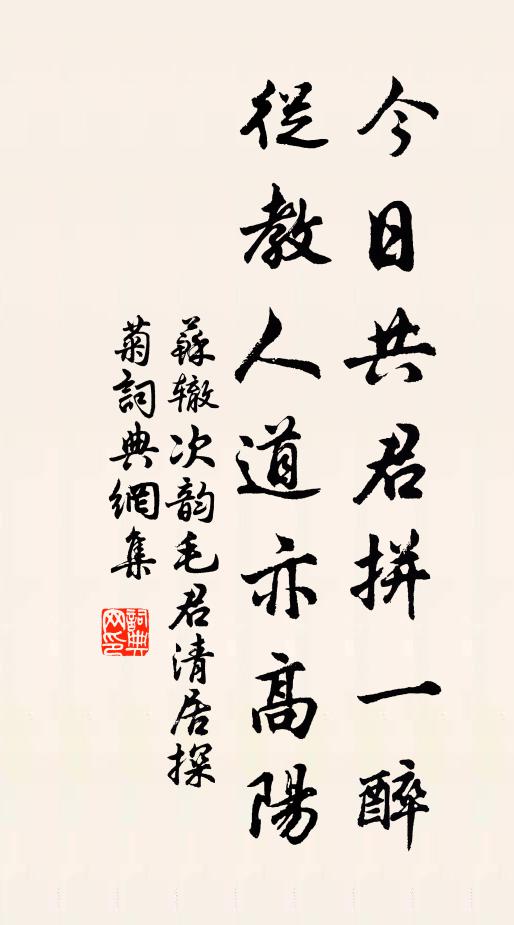 今日共君拼一醉
從教人道亦高陽
蘇辙次韵毛君清居探
菊詞典網集
詞典
网印